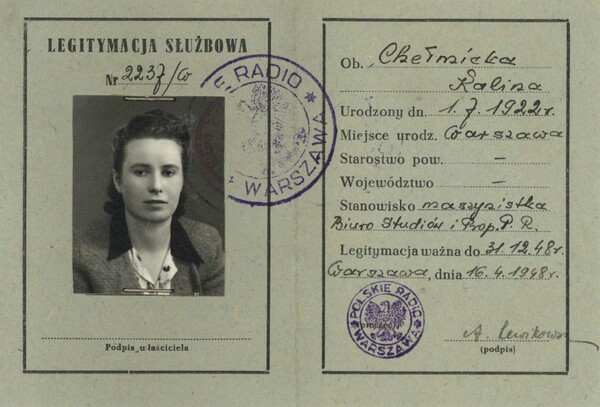 LEGITYMACJA SŁUŻBOWA
Nr 2237/W
E RADIO * WARSZAWA
Podpis właściciela
Ob. Chełmicka
Kalina
Urodzony dn. 1.7.1922r.
Miejsce urodz. Warszawa
Starostwo pow. —
Województwo —
Stanowisko maszynistka
Biuro Studiów i Prop. P. R.
Legitymacja ważna do 31.12.48r.
Warszawa, dnia 16.4.1948r.
POLSKIE RADIO * WARSZAWA *
(podpis)